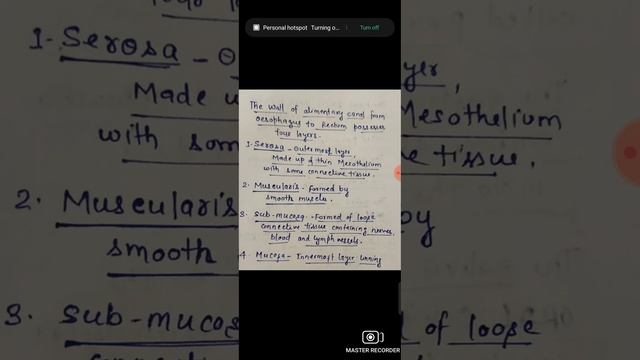 Personal hotspot Turning o... Turn off
The wall of alimentary canal from
oesophagus to Rectum possesses
four layers.
1. Serosa - Outermost layer,
Made up of thin Mesothelium
with some connective tissue.
2. Muscularis - Formed by
smooth muscles.
3. Sub-mucosa - Formed of loose
connective tissue containing nerves,
blood and lymph vessels.
4. Mucosa - Innermost layer lining
MASTER RECORDER
1. Serosa - O
yer,
Made u
Mesothelium
with som
ve tissue.
2. Muscularis
by
smooth
3. Sub-mucos
of loose